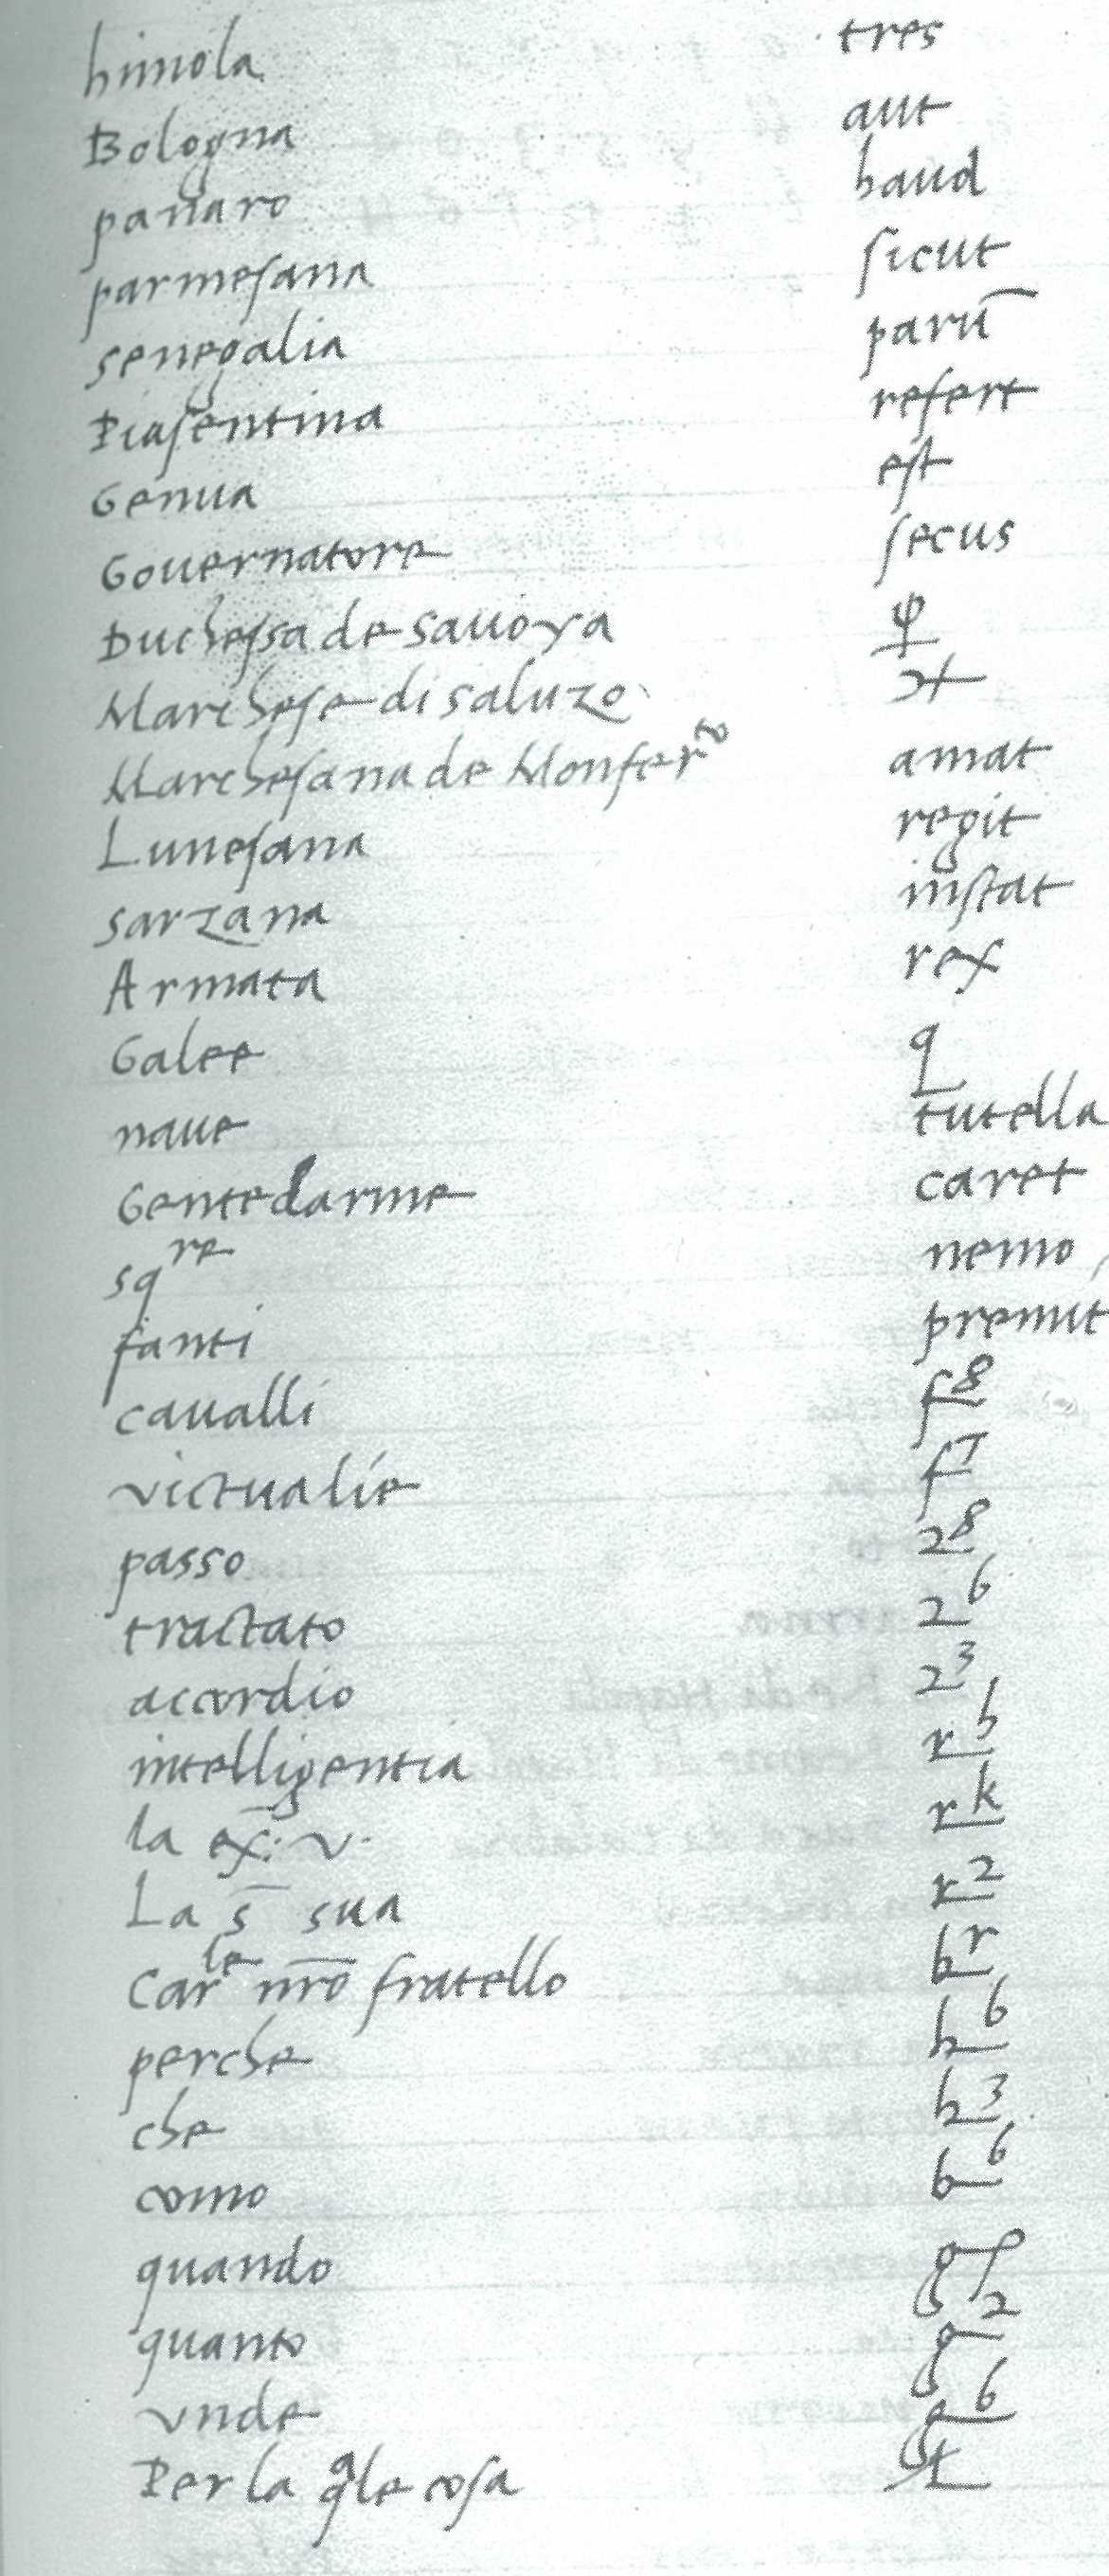 himola tres
Bologna aut
panaro haud
parmesana sicut
senegalia parū
Piasentina refert
Genua est
Gouernatore secus
Duchessa de sauoya φ
Marchese di saluzo
Marchesana de Monferto amat
Lunesana regit
sarzana instat
Armata rex
Galee q
naue tutella
Gente darme caret
sqre nemo
fanti premit
caualli f8
victualie f7
passo 28
tractato 26
accordio 23
intelligentia rh
la ex: v. rk
La s̄ sua r2
Carle nr̄o fratello br
perche h6
che h3
como b6
quando gp
quanto g2
vnde g6
Per la qale cosa